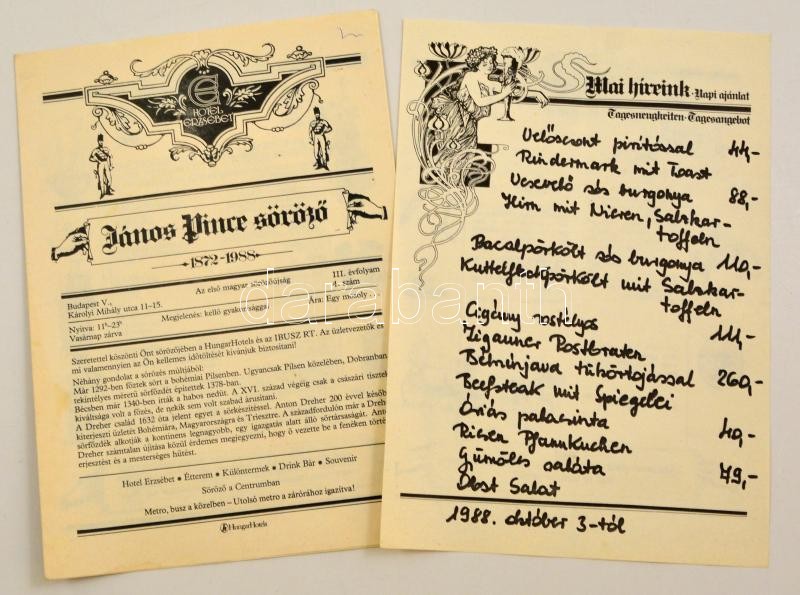 HOTEL
ERZSÉBET
János Pince söröző
1872-1988
Budapest V.,
Károlyi Mihály utca 11-15.
Az első magyar sörözőújság
III. évfolyam
4. szám
Nyitva: 11ʰ-23ʰ
Vasárnap zárva
Megjelenés: kellő gyakorisággal
Ára: Egy mosoly
Szeretettel köszönti Önt sörözőjében a HungarHotels és az IBUSZ RT. Az üzletvezetők és
mi valamennyien az Ön kellemes időtöltését kívánjuk biztosítani!
Néhány gondolat a sörözés múltjából:
Már 1292-ben főztek sört a bohémiai Pilsenben. Ugyancsak Pilsen közelében, Dobranban
tekintélyes méretű sörfőzdét építettek 1378-ban.
Bécsben már 1340-ben itták a habos nedűt. A XVI. század végéig csak a császári tisztek
kiváltsága volt a főzés, de nekik sem volt szabad árusítani.
A Dreher család 1632 óta jelent egyet a sörkészítéssel. Anton Dreher 200 évvel később
kiterjeszti üzletét Bohémiára, Magyarországra és Triesztre. A századfordulón már a Dreher
sörfőzdék alkotják a kontinens legnagyobb, egy igazgatás alatt álló sörtársaságát. Anton
Dreher számtalan újítása közül érdemes megjegyezni, hogy ő vezette be a fenéken történő
erjesztést és a mesterséges hűtést.
Hotel Erzsébet • Étterem • Különtermek • Drink Bár • Souvenir
Söröző a Centrumban
Metro, busz a közelben - Utolsó metro a zárórához igazítva!
HungarHotels
Mai híreink · Napi ajánlat
Tagesneuigkeiten · Tagesangebot
Velőscsont pirítóssal 44,-
Rindermark mit Toast
Vesevelő sós burgonya 88,-
Hirn mit Nieren, Salzkar-
toffeln
Pacalpörkölt sós burgonya 110,-
Kuttelfleckpörkölt mit Salzkar-
toffeln
Cigány rostélyos 111,-
Zigauner Rostbraten
Bélszínjava tükörtojással 260,-
Beefsteak mit Spiegelei
Óriás palacsinta 40,-
Riesen Pfannkuchen
Gümölcs saláta 79,-
Obst Salat
1988. október 3-tól
darabanth